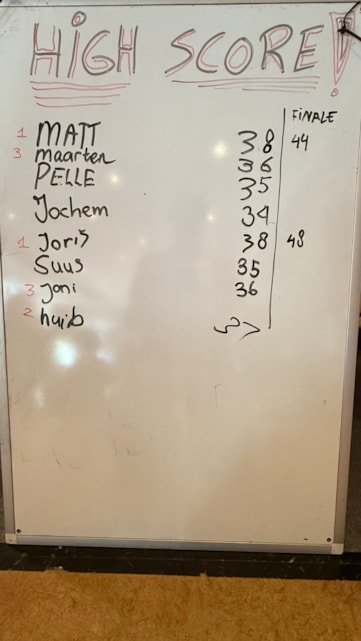 HiGH SCORE!
FiNALE
1 MATT 38 44
3 maarten 36
PELLE 35
Jochem 34
1 Joris 38 48
Suus 35
3 joni 36
2 huib 37